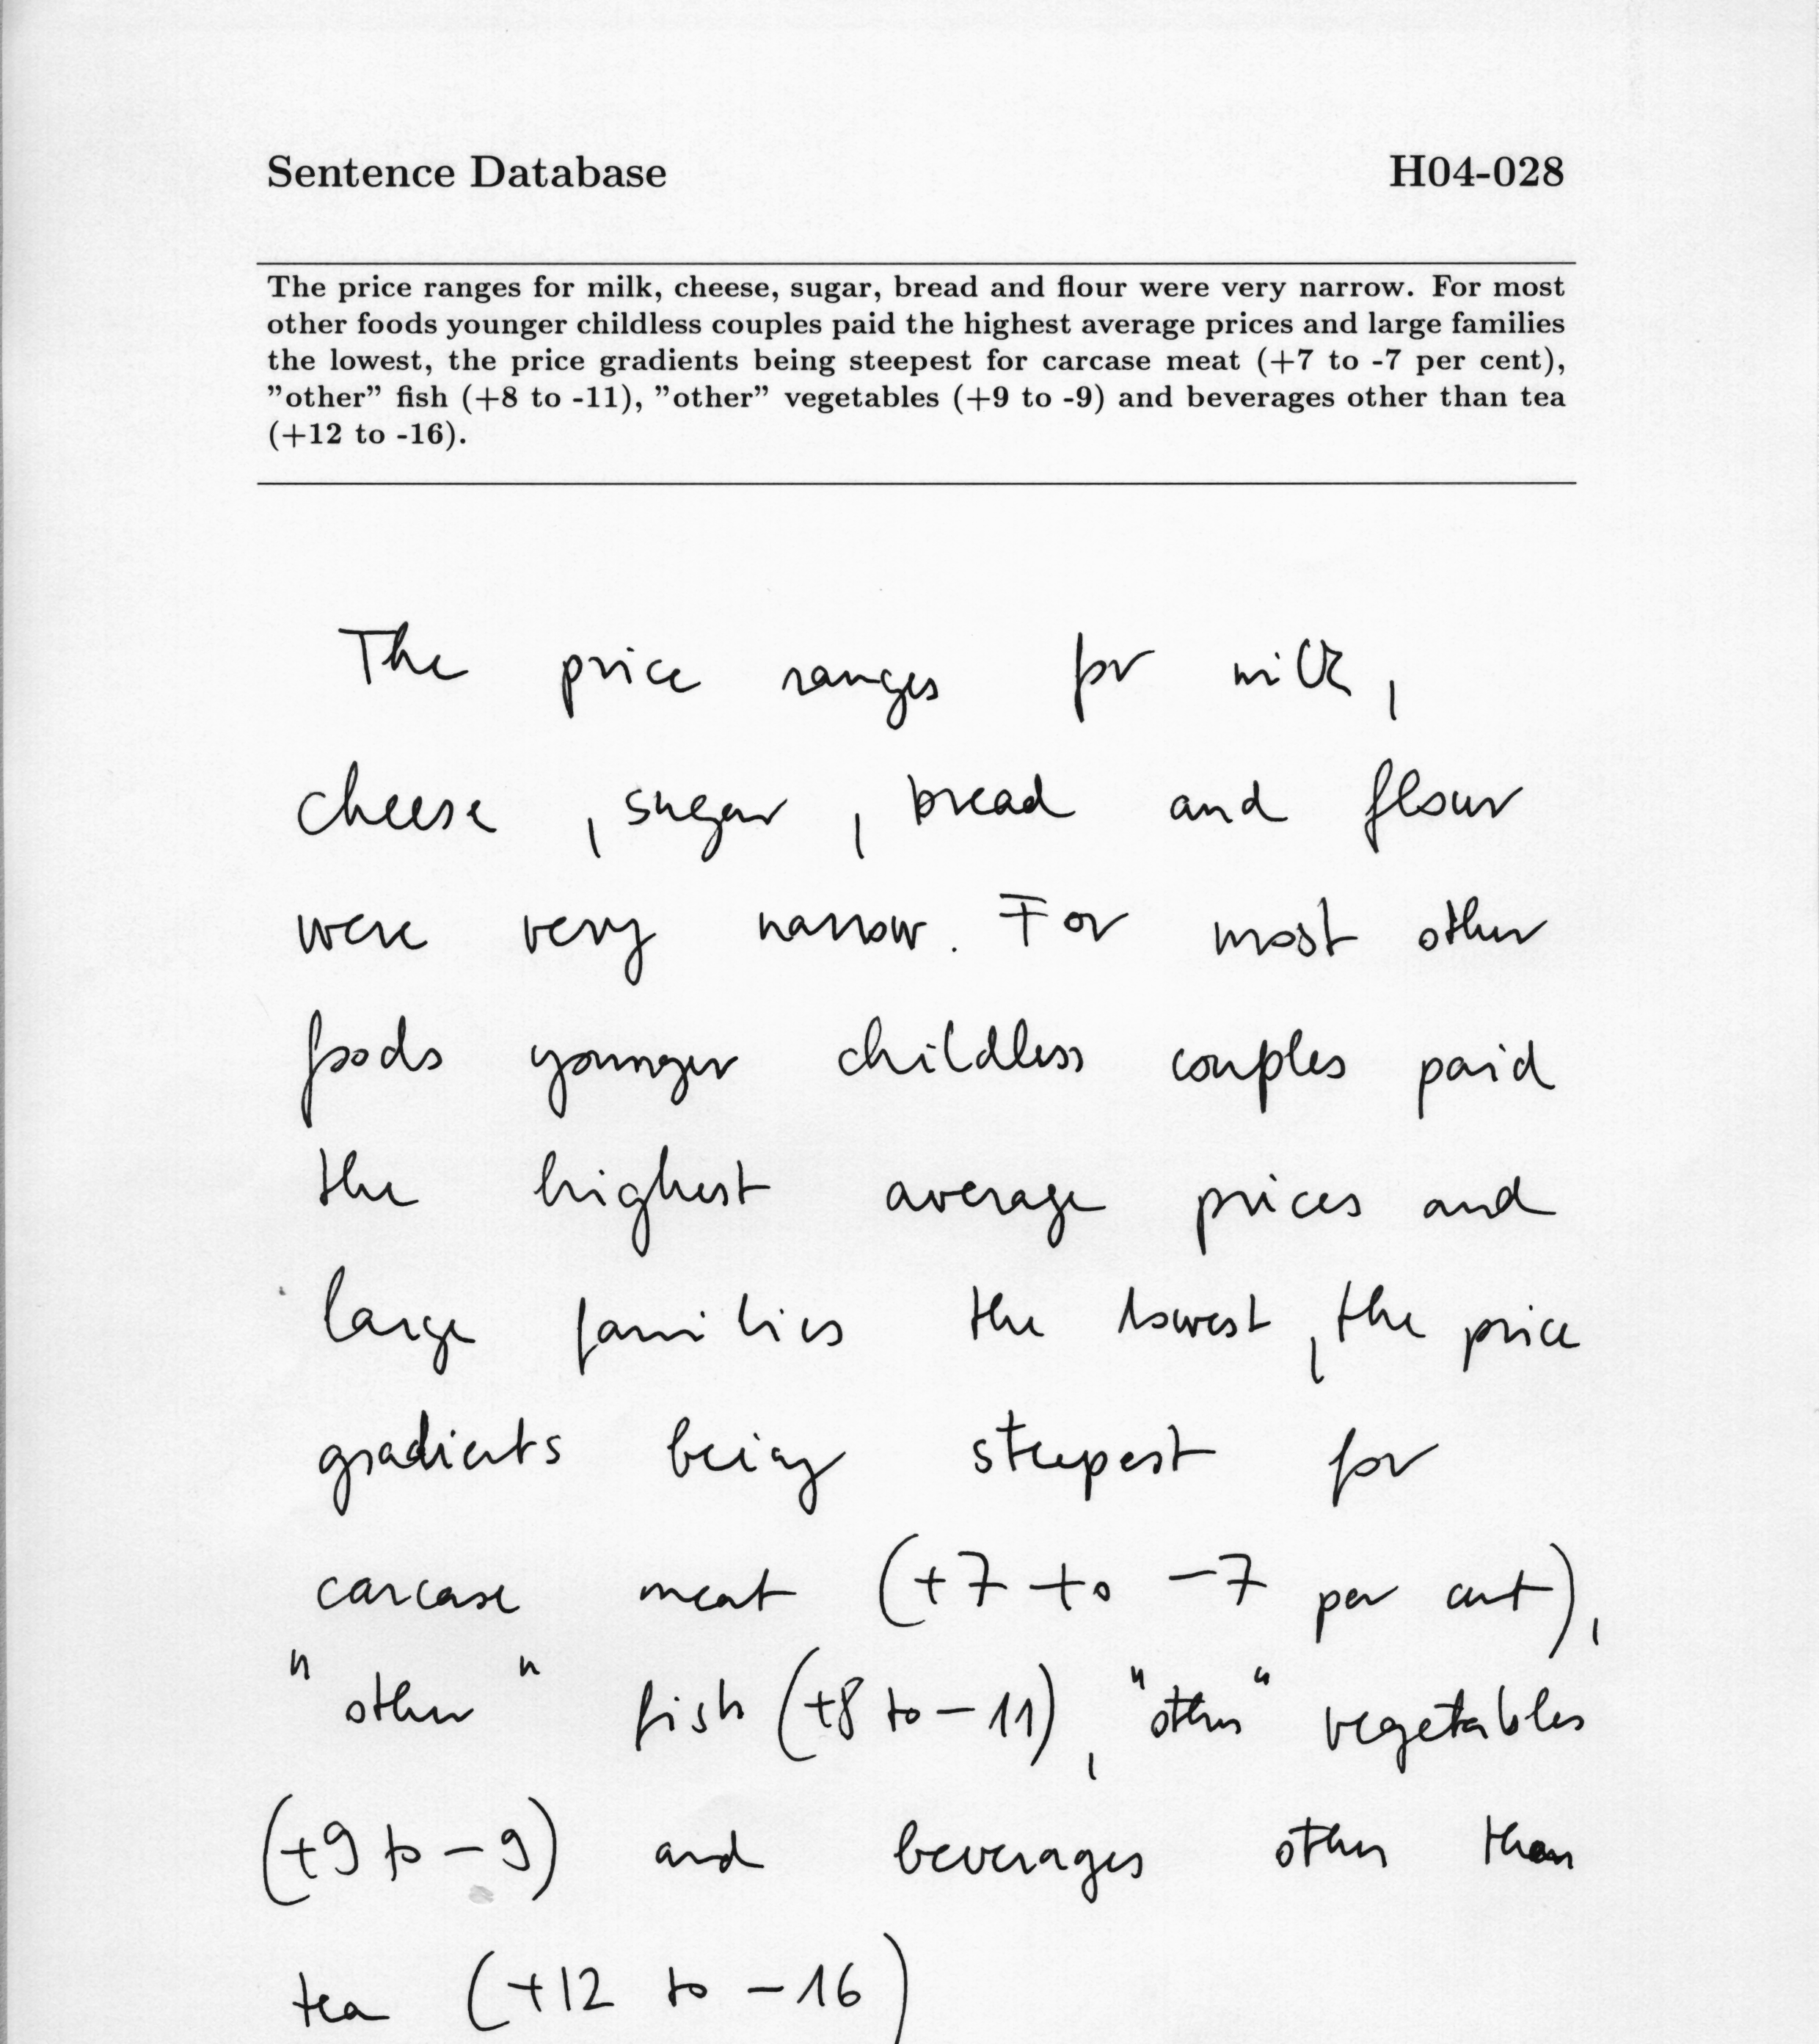 Sentence Database H04-028
The price ranges for milk, cheese, sugar, bread and flour were very narrow. For most
other foods younger childless couples paid the highest average prices and large families
the lowest, the price gradients being steepest for carcase meat (+7 to -7 per cent),
"other" fish (+8 to -11), "other" vegetables (+9 to -9) and beverages other than tea
(+12 to -16).
The price ranges for milk,
cheese, sugar, bread and flour
were very narrow. For most other
foods younger childless couples paid
the highest average prices and
large families the lowest, the price
gradients being steepest for
carcase meat (+7 to -7 per cent),
"other" fish (+8 to -11), "other" vegetables
(+9 to -9) and beverages other than
tea (+12 to -16)